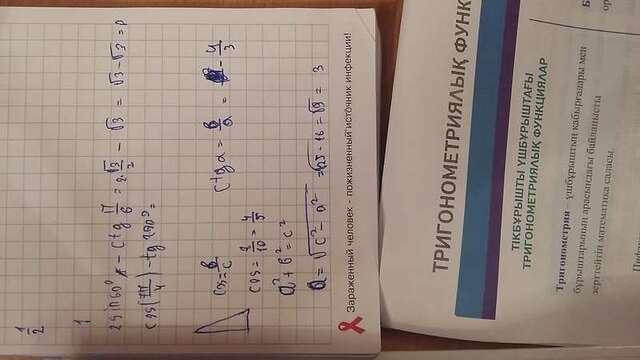 1/2
1
2 sin 60° - ctg π/6 = 2·√3/2 - √3 = √3 - √3 = 0
cos(7π/4) - tg 290° =
cos = b/c
ctg α = b/a = - 4/3
cos = 8/10 = 4/5
a² + b² = c²
a = √c² - a² = √25 - 16 = √9 = 3
Зараженный человек - пожизненный источник инфекции!
ТРИГОНОМЕТРИЯЛЫҚ ФУНК
ТІКБҰРЫШТЫ ҮШБҰРЫШТАҒЫ
ТРИГОНОМЕТРИЯЛЫҚ ФУНКЦИЯЛАР
Тригонометрия – үшбұрыштың қабырғалары мен
бұрыштарының арасындағы байланысты
зерттейтін математика саласы.